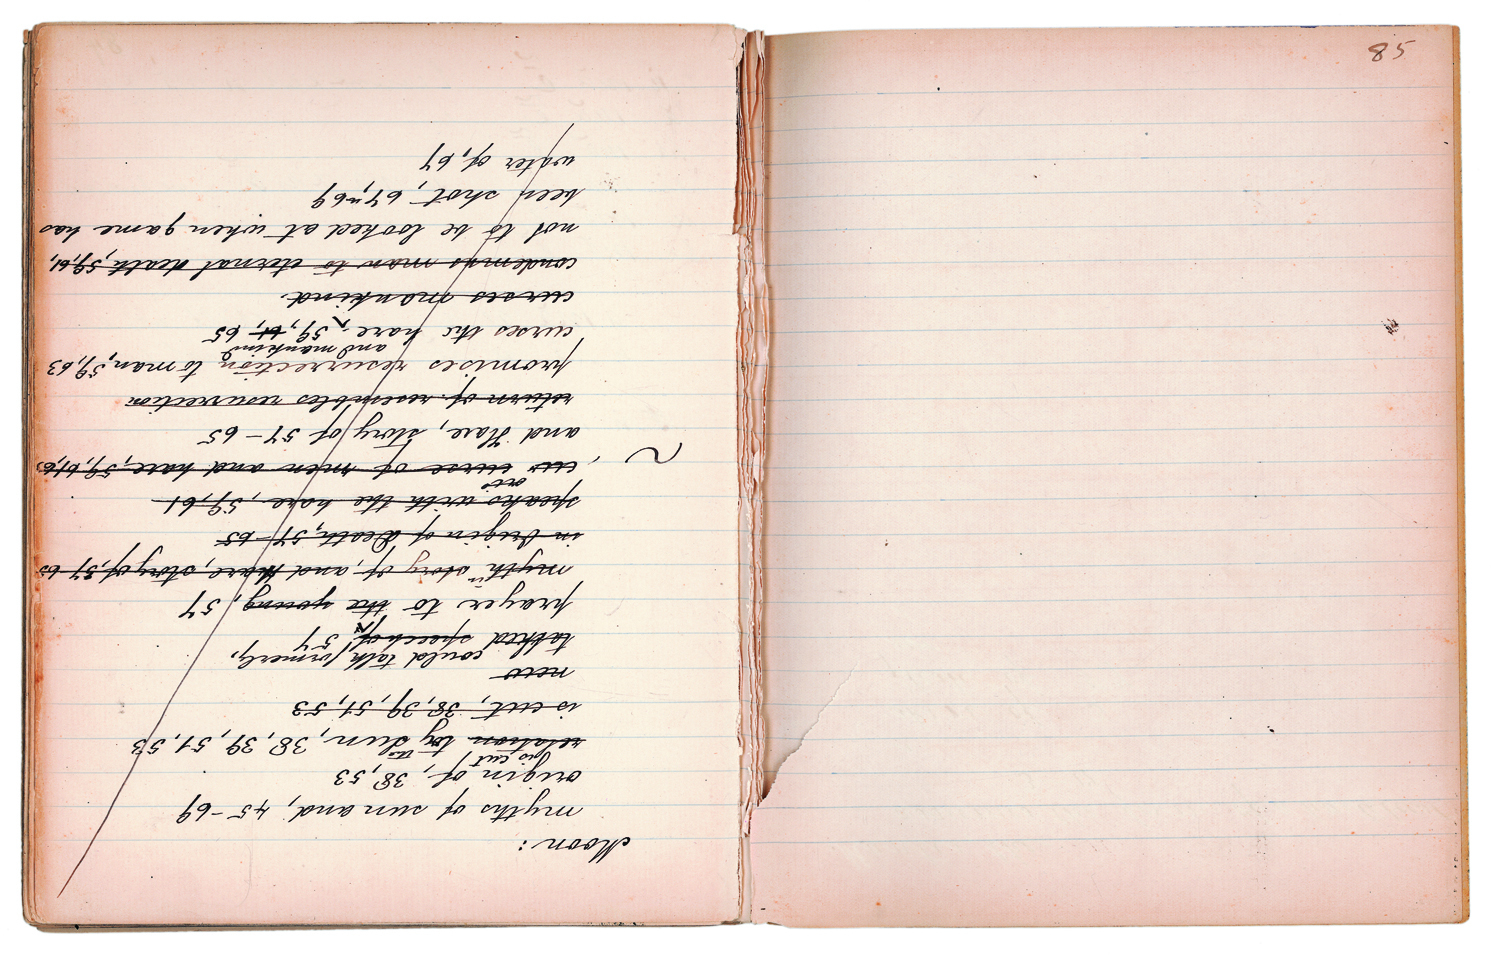 Moon:
myths of sun and, 45-69
origin of, 38, 53
is cut
relation to by the Sun, 38, 39, 51, 53
is cut, 38, 39, 51, 53
new
could talk formerly,
talked speech of 57
prayer to the young, 57
myth in story of, and Hare, story of, 57-65
in Origin of Death, 57-65
speaks with the hare, 59, 61
curse of men and hare, 59, 61, 65
and Hare, story of 57-65
return of resembles resurrection
promises resurrection to man, 59, 63
and mankind
curses the hare, 59, 61, 65
curses mankind
condemns man to eternal death, 59, 61,
not to be looked at when game has
been shot, 67-69
water of, 67
85